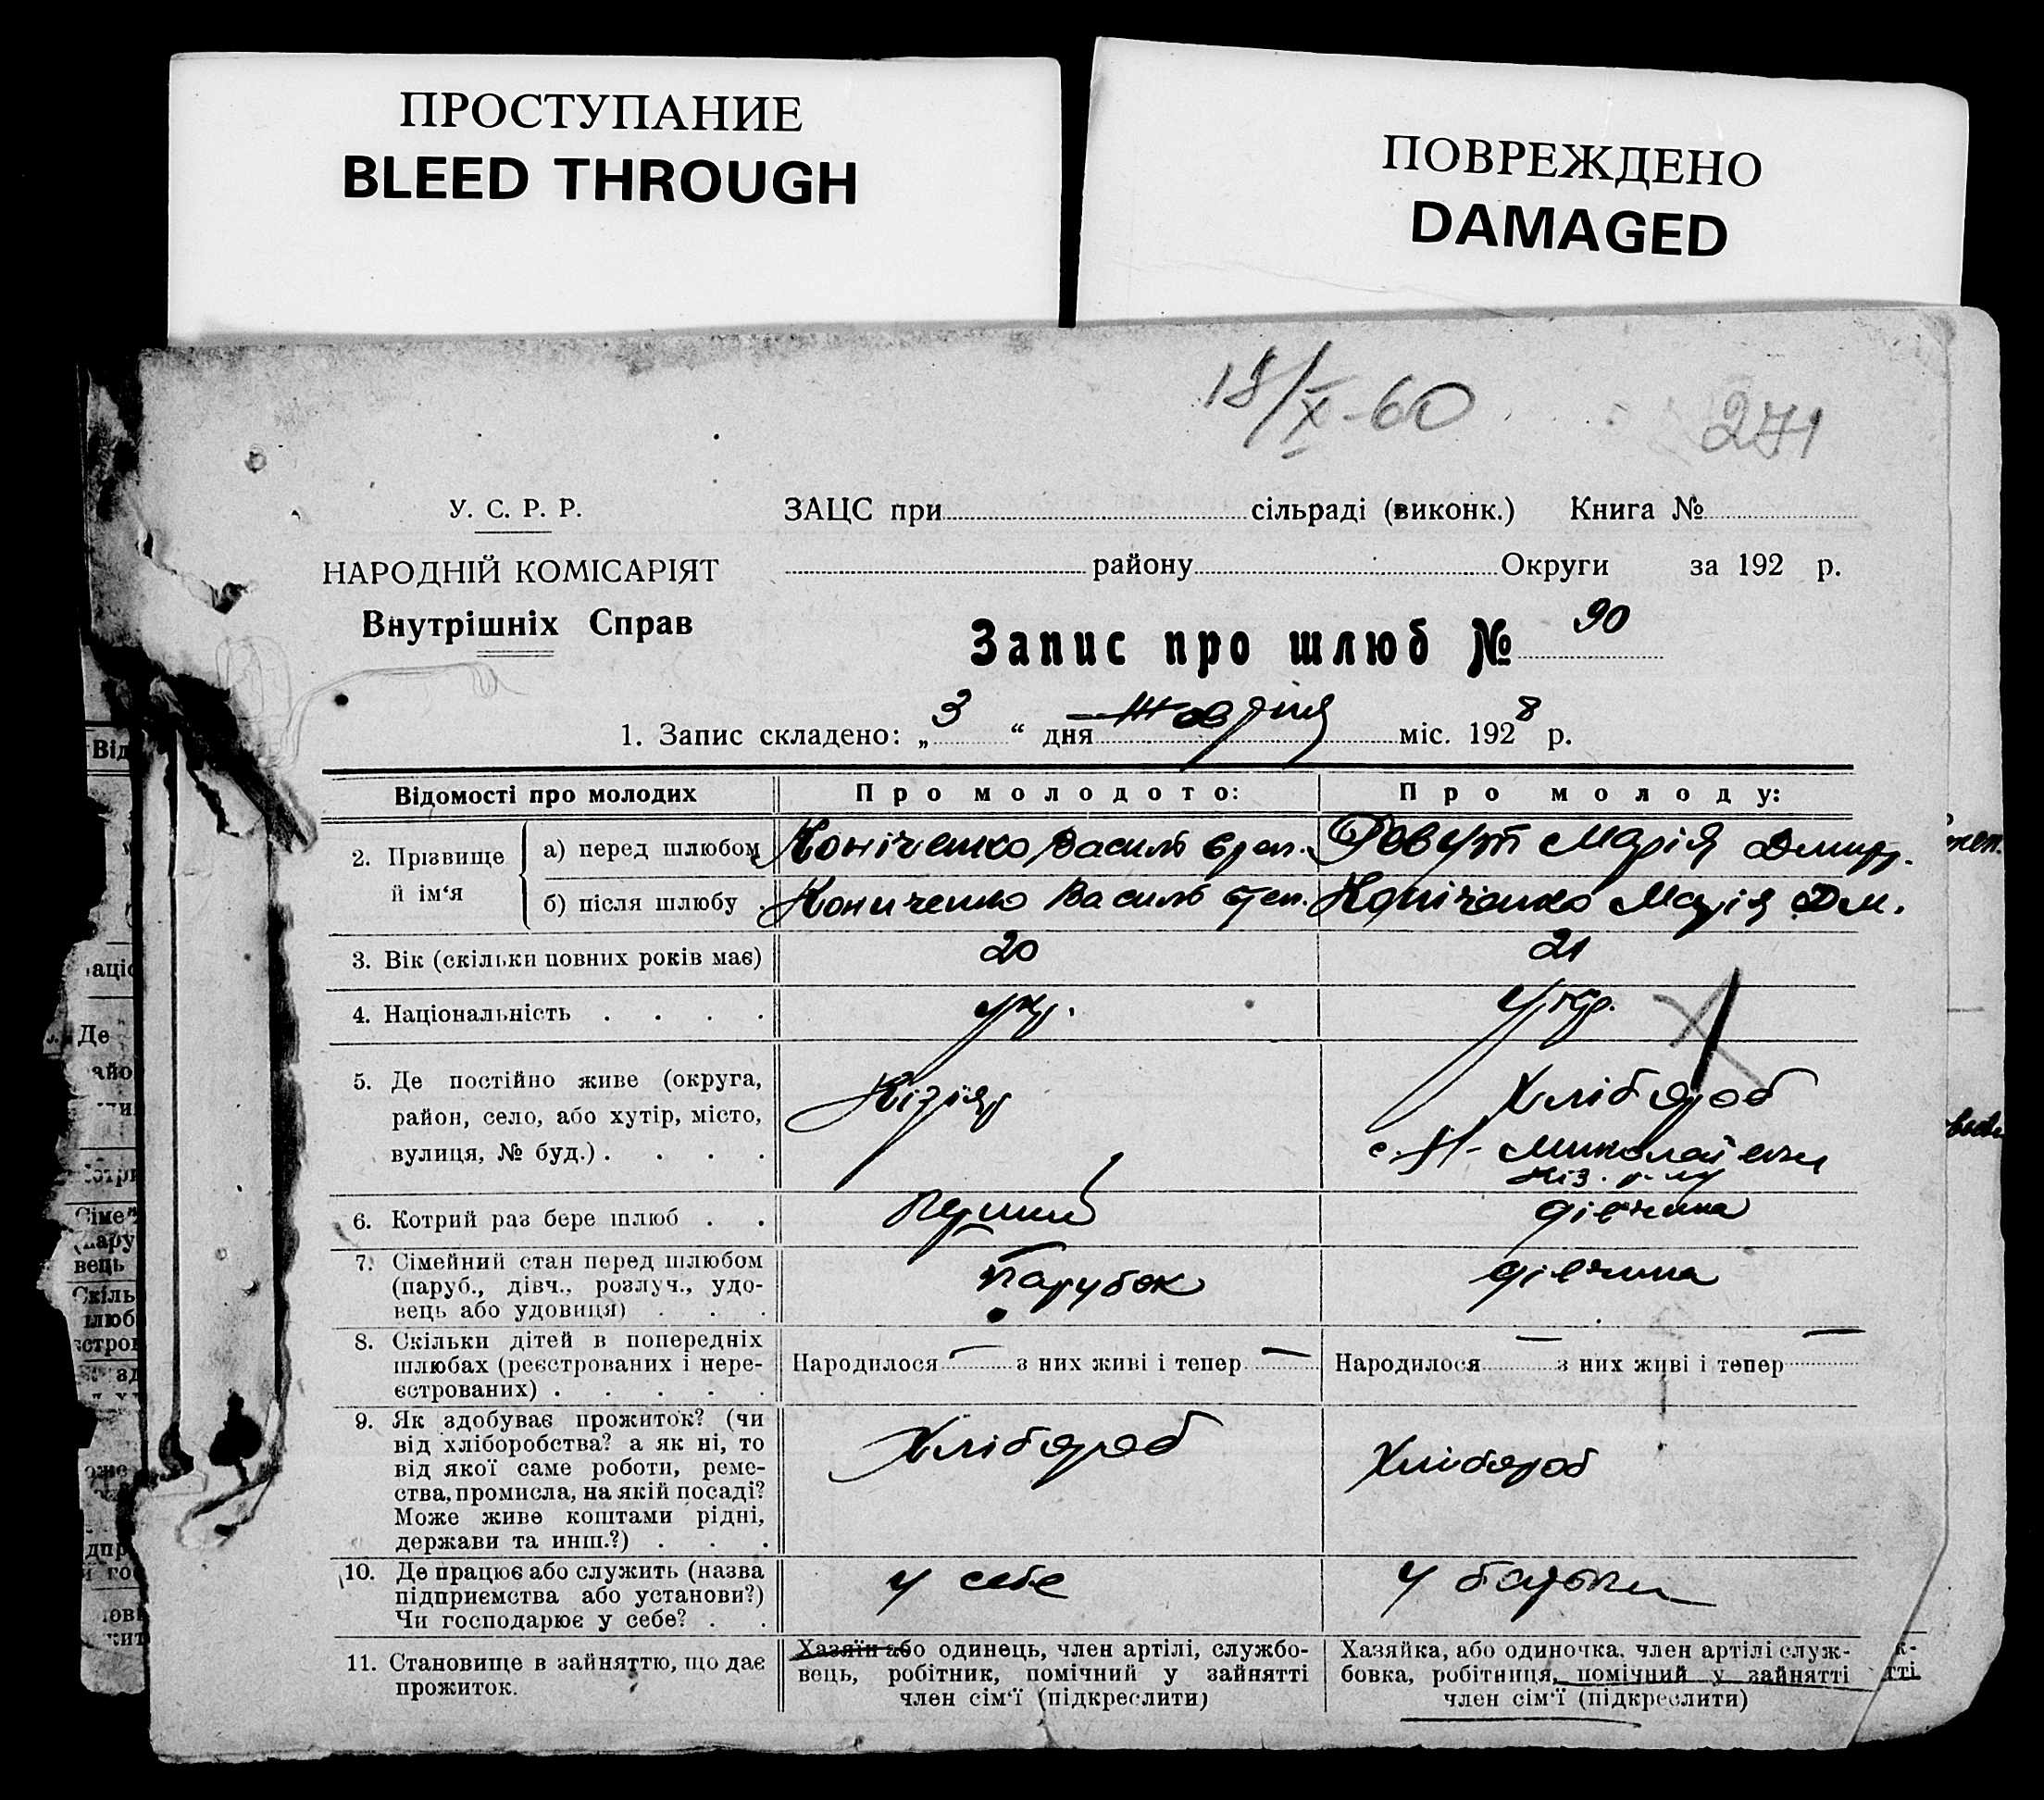 ПРОСТУПАНИЕ
BLEED THROUGH
ПОВРЕЖДЕНО
DAMAGED
18/X-60
271
У. С. Р. Р.
НАРОДНІЙ КОМІСАРІЯТ
Внутрішніх Справ
ЗАЦС при сільраді (виконк.) Книга №
району Округи за 192 р.
Запис про шлюб № 90
1. Запис складено: „3“ дня Жовтня міс. 1928 р.
Відомості про молодих
Про молодого:
Про молоду:
2. Прізвище й ім‘я
а) перед шлюбом
Коніченко Василь
Марія Дмитр.
б) після шлюбу
Кониченко Василь Степ.
Коніченко Марія Дм.
3. Вік (скільки повних років має)
20
21
4. Національність . . . .
укр.
укр.
5. Де постійно живе (округа,
район, село, або хутір, місто,
вулиця, № буд.) . . . .
Хлібороб
с. Н-Миколаївки
6. Котрий раз бере шлюб . .
Перший
дівчина
7. Сімейний стан перед шлюбом
(паруб., дівч., розлуч., удо-
вець або удовиця) . . .
Парубок
дівчина
8. Скільки дітей в попередніх
шлюбах (реєстрованих і нере-
єстрованих) . . . . .
Народилося — з них живі і тепер —
Народилося — з них живі і тепер —
9. Як здобуває прожиток? (чи
від хліборобства? а як ні, то
від якої саме роботи, реме-
ства, промисла, на якій посаді?
Може живе коштами рідні,
держави та инш.?) . . .
Хлібороб
Хлібороб
10. Де працює або служить (назва
підприємства або установи?)
Чи господарює у себе? . .
у себе
у батьки
11. Становище в зайняттю, що дає
прожиток.
Хазяїн або одинець, член артілі, службо-
вець, робітник, помічний у зайнятті
член сім‘ї (підкреслити)
Хазяйка, або одиночка, член артілі служ-
бовка, робітниця, помічний у зайнятті
член сім‘ї (підкреслити)